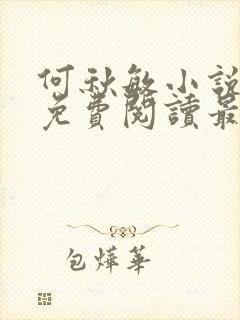 何秋敏小說
免費閱讀最
包燁華